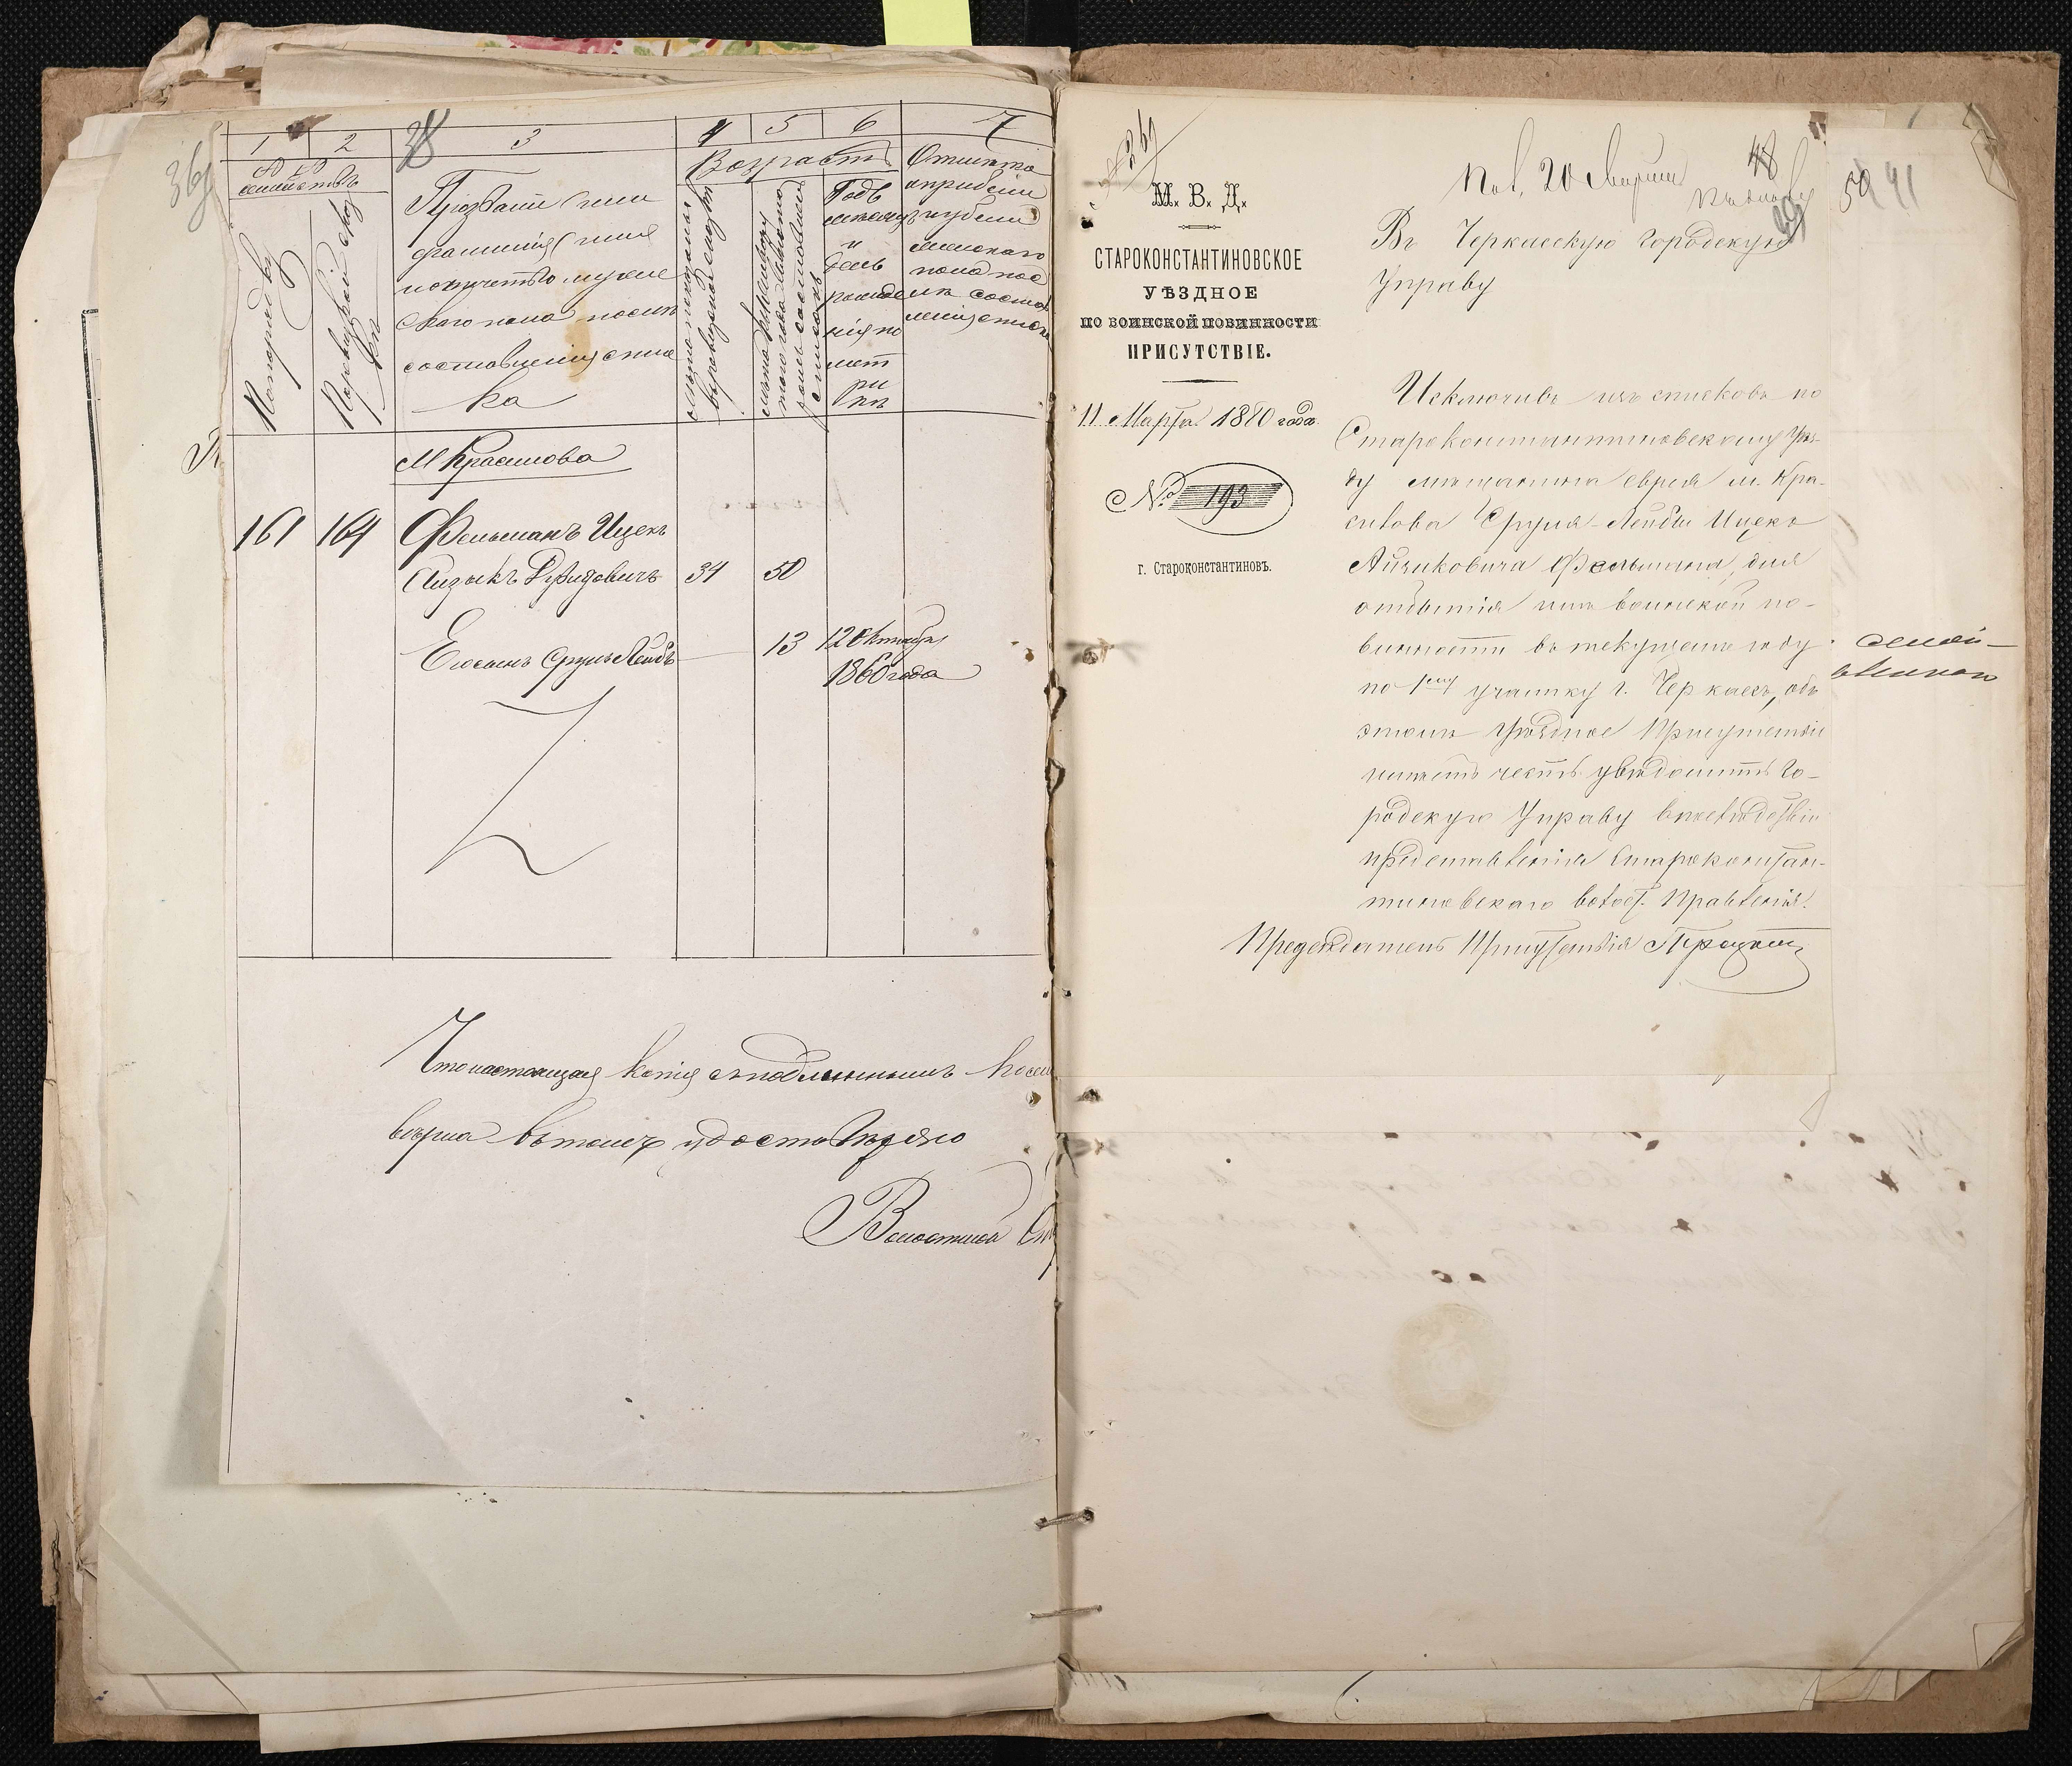 36
38
1 2 3 4 5 6 7
№ №
семействъ
По порядку
По ревизской сказкѣ
Прозваніе (или
фамилія) имя
и отчество муже
скаго пола послѣ
составленія спис
ка
Возрастъ
Годъ
мѣсяцъ
и
день
рожде
нія по
мет
ри
кѣ
Отмѣтка
о прибыли
и убыли
мужскаго
пола пос
лѣ состав
ленія списка
М Красилова
161 164 Фельманъ Ицекъ
Айзыкъ Дувидовичъ 34 50
Его сынъ Сруль Лейбъ — 13 12 октября
1860 года
Что настоящая копія съ подлиннымъ посем
вѣрна въ томъ удостовѣряю
Волостной Ст
№ 269
М. В. Д.
СТАРОКОНСТАНТИНОВСКОЕ
УѢЗДНОЕ
ПО ВОИНСКОЙ ПОВИННОСТИ
ПРИСУТСТВІЕ.
11 Марта 1880 года.
№ 193
г. Староконстантиновъ.
Пол. 20 Марта
48
49
50 41
Въ Черкасскую Городскую
Управу
Исключивъ изъ списковъ по
Староконстантиновскому Уѣз-
ду мѣщанина еврея м. Кра-
силова Сруля-Лейбы Ицекъ
Айзиковича Фельмана, для
отбытія имъ воинской по-
винности въ текущемъ году
по 1му участку г. Черкасъ, объ
этомъ Уѣздное Присутствіе
имѣетъ честь увѣдомить Го-
родскую Управу впослѣдствіи
представленія Староконстан-
тиновскаго волост. Правленія.
Предсѣдатель Присутствія